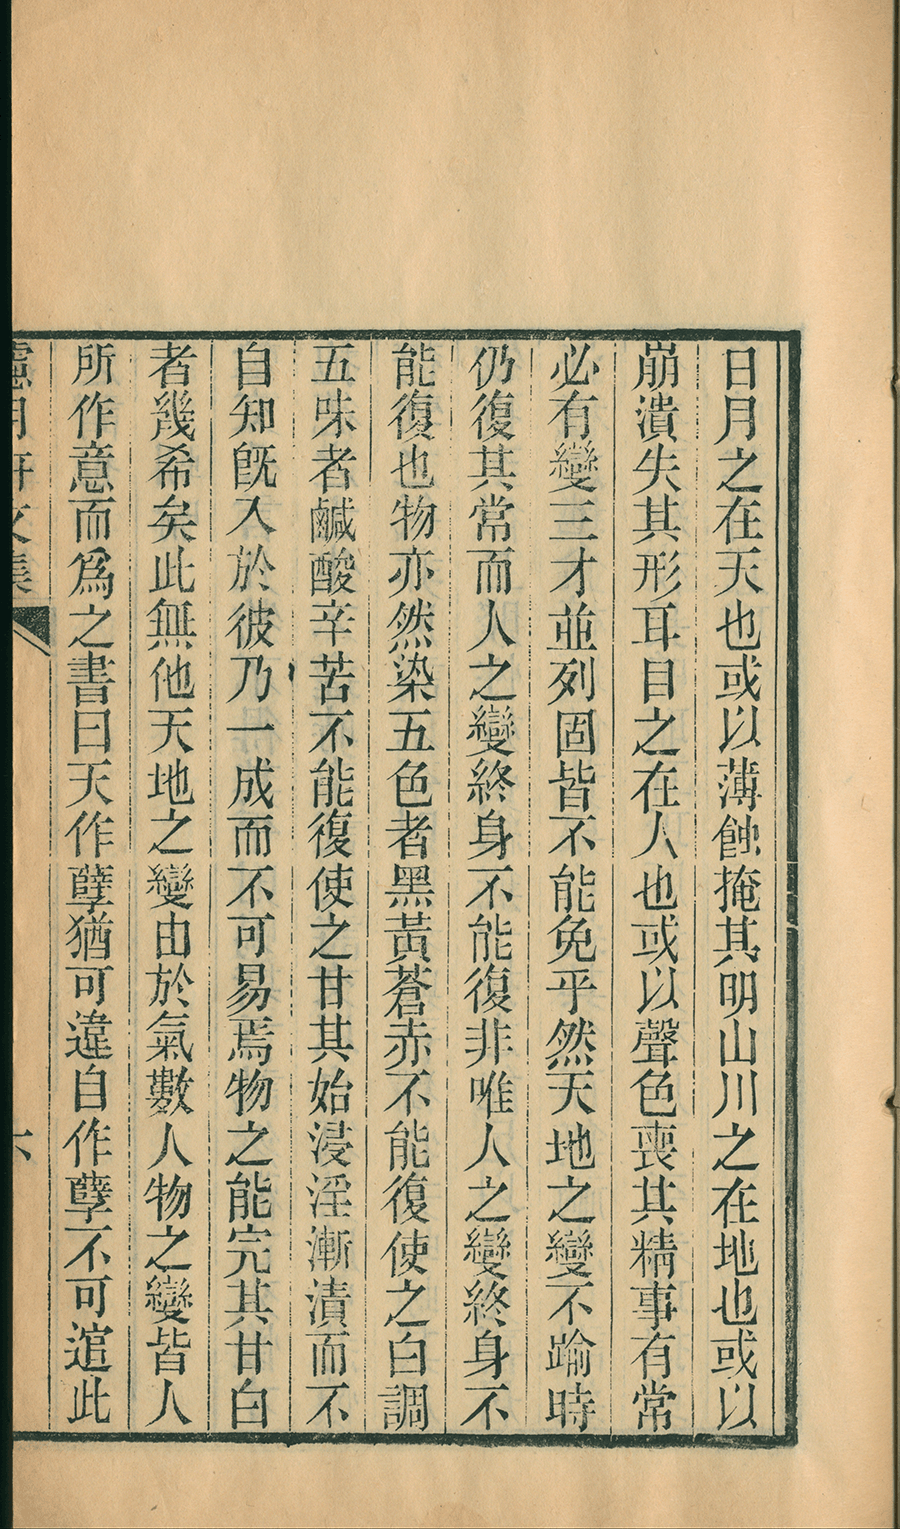 日月之在天也或以薄蝕掩其明山川之在地也或以
崩潰失其形耳目之在人也或以聲色喪其精事有常
必有變三才並列固皆不能免乎然天地之變不踰時
仍復其常而人之變終身不能復非唯人之變終身不
能復也物亦然染五色者黑黃蒼赤不能復使之白調
五味者鹹酸辛苦不能復使之甘其始浸淫漸漬而不
自知旣入於彼乃一成而不可易焉物之能完其甘白
者幾希矣此無他天地之變由於氣數人物之變皆人
所作意而爲之書曰天作孽猶可違自作孽不可逭此
月軒文集
六